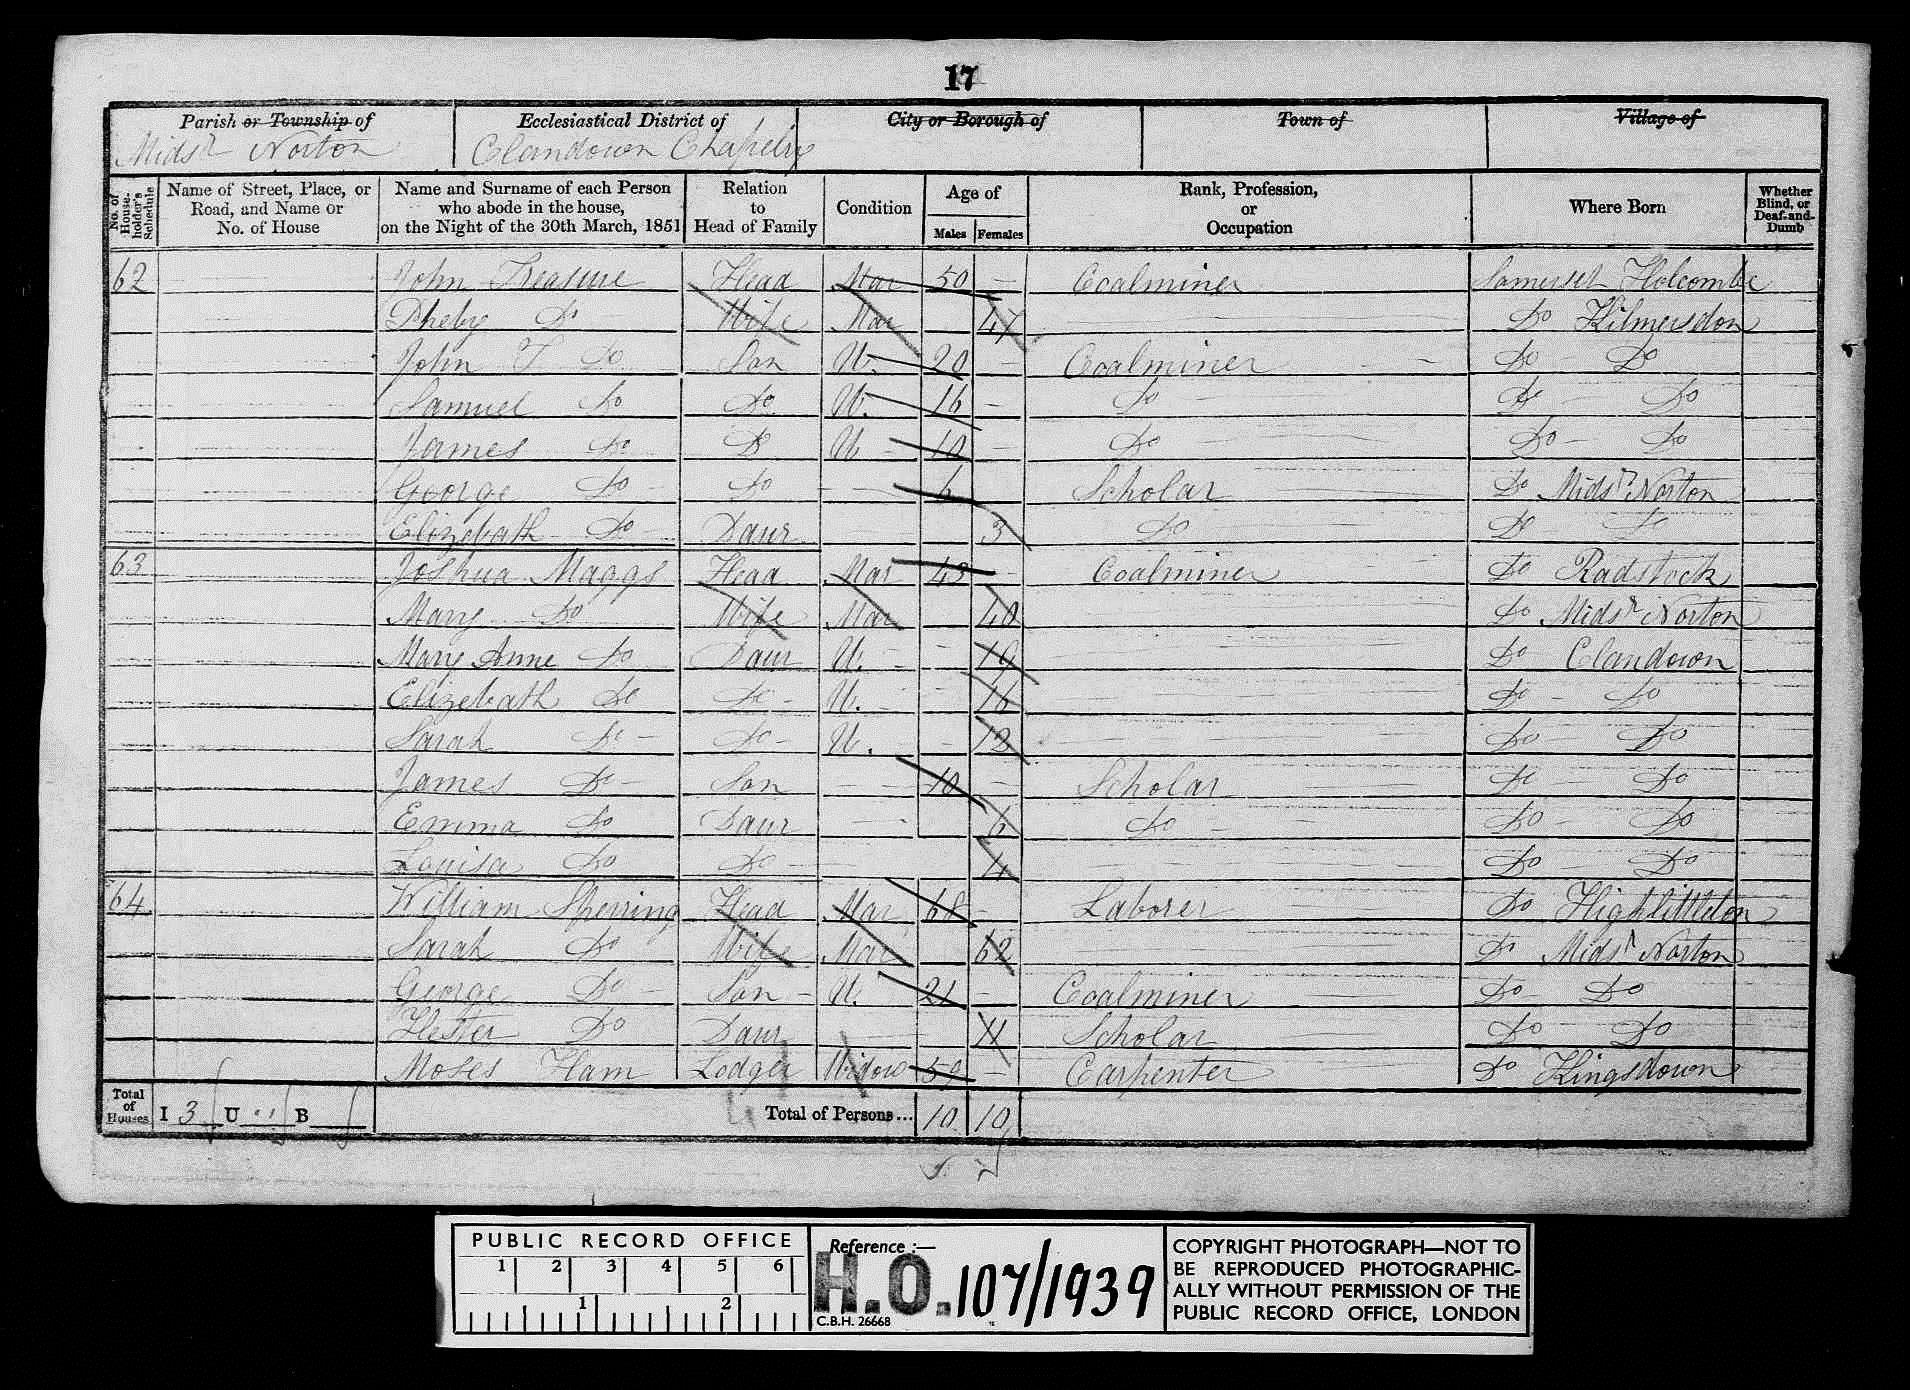 17
Parish or Township of Ecclesiastical District of City or Borough of Town of Village of
Midsr Norton Clandown Chapelry
No. of House-holder's Schedule
Name of Street, Place, or Road, and Name or No. of House
Name and Surname of each Person who abode in the house, on the Night of the 30th March, 1851
Relation to Head of Family
Condition
Age of
Males Females
Rank, Profession, or Occupation
Where Born
Whether Blind, or Deaf-and-Dumb
62 John Treasure Head Mar 50 – Coalminer Somerset Holcombe
Pheby Do Wife Mar 47 Do Kilmersdon
John T Do Son U. 20 – Coalminer Do Do
Samuel Do Do U. 16 – Do Do Do
James Do Do U 10 – Do Do Do
George Do Do 6 Scholar Do Midsr Norton
Elizebath Do Daur 3 Do Do Do
63 Joshua Maggs Head Mar 43 – Coalminer Do Radstock
Mary Do Wife Mar 40 Do Midsr Norton
Mary Anne Do Daur U. 19 Do Clandown
Elizebath Do Do U. 16 Do Do
Sarah Do Do U. 12 Do Do
James Do Son 10 – Scholar Do Do
Emma Do Daur 6 Do Do Do
Louisa Do Do 4 Do Do
64 William Sperring Head Mar 68 – Laborer Do Highlittleton
Sarah Do Wife Mar 62 Do Midsr Norton
George Do Son U. 21 – Coalminer Do Do
Hester Do Daur 11 Scholar Do Do
Moses Ham Lodger Widow 59 – Carpenter Do Kingsdown
Total of Houses I 3 U B Total of Persons... 10 10
PUBLIC RECORD OFFICE
1 2 3 4 5 6
1 2
Reference :—
H.O. 107/1939
C.B.H. 26668
COPYRIGHT PHOTOGRAPH—NOT TO
BE REPRODUCED PHOTOGRAPHIC-
ALLY WITHOUT PERMISSION OF THE
PUBLIC RECORD OFFICE, LONDON